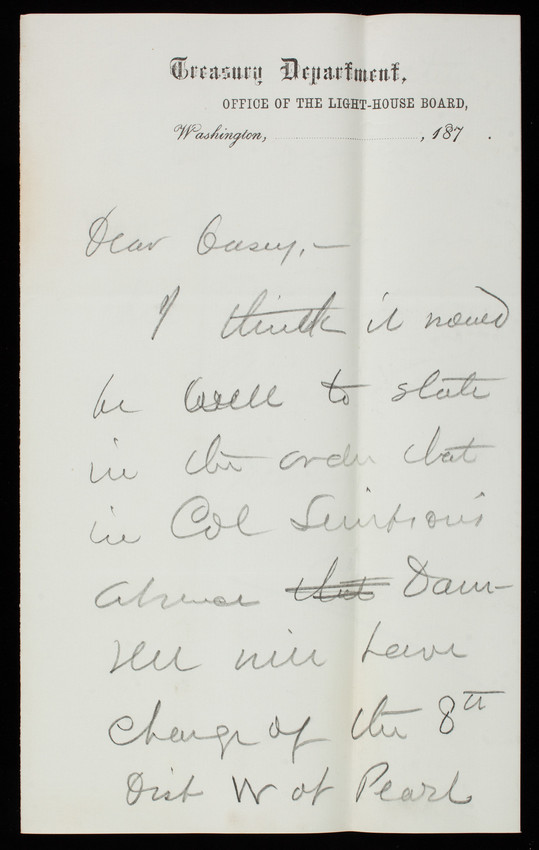 Treasury Department,
OFFICE OF THE LIGHT-HOUSE BOARD,
Washington, , 187 .
Dear Casey,—
I think it would
be well to state
in the order that
in Col Simpson's
absence that Dam-
rell will have
charge of the 8th
Dist W of Pearl